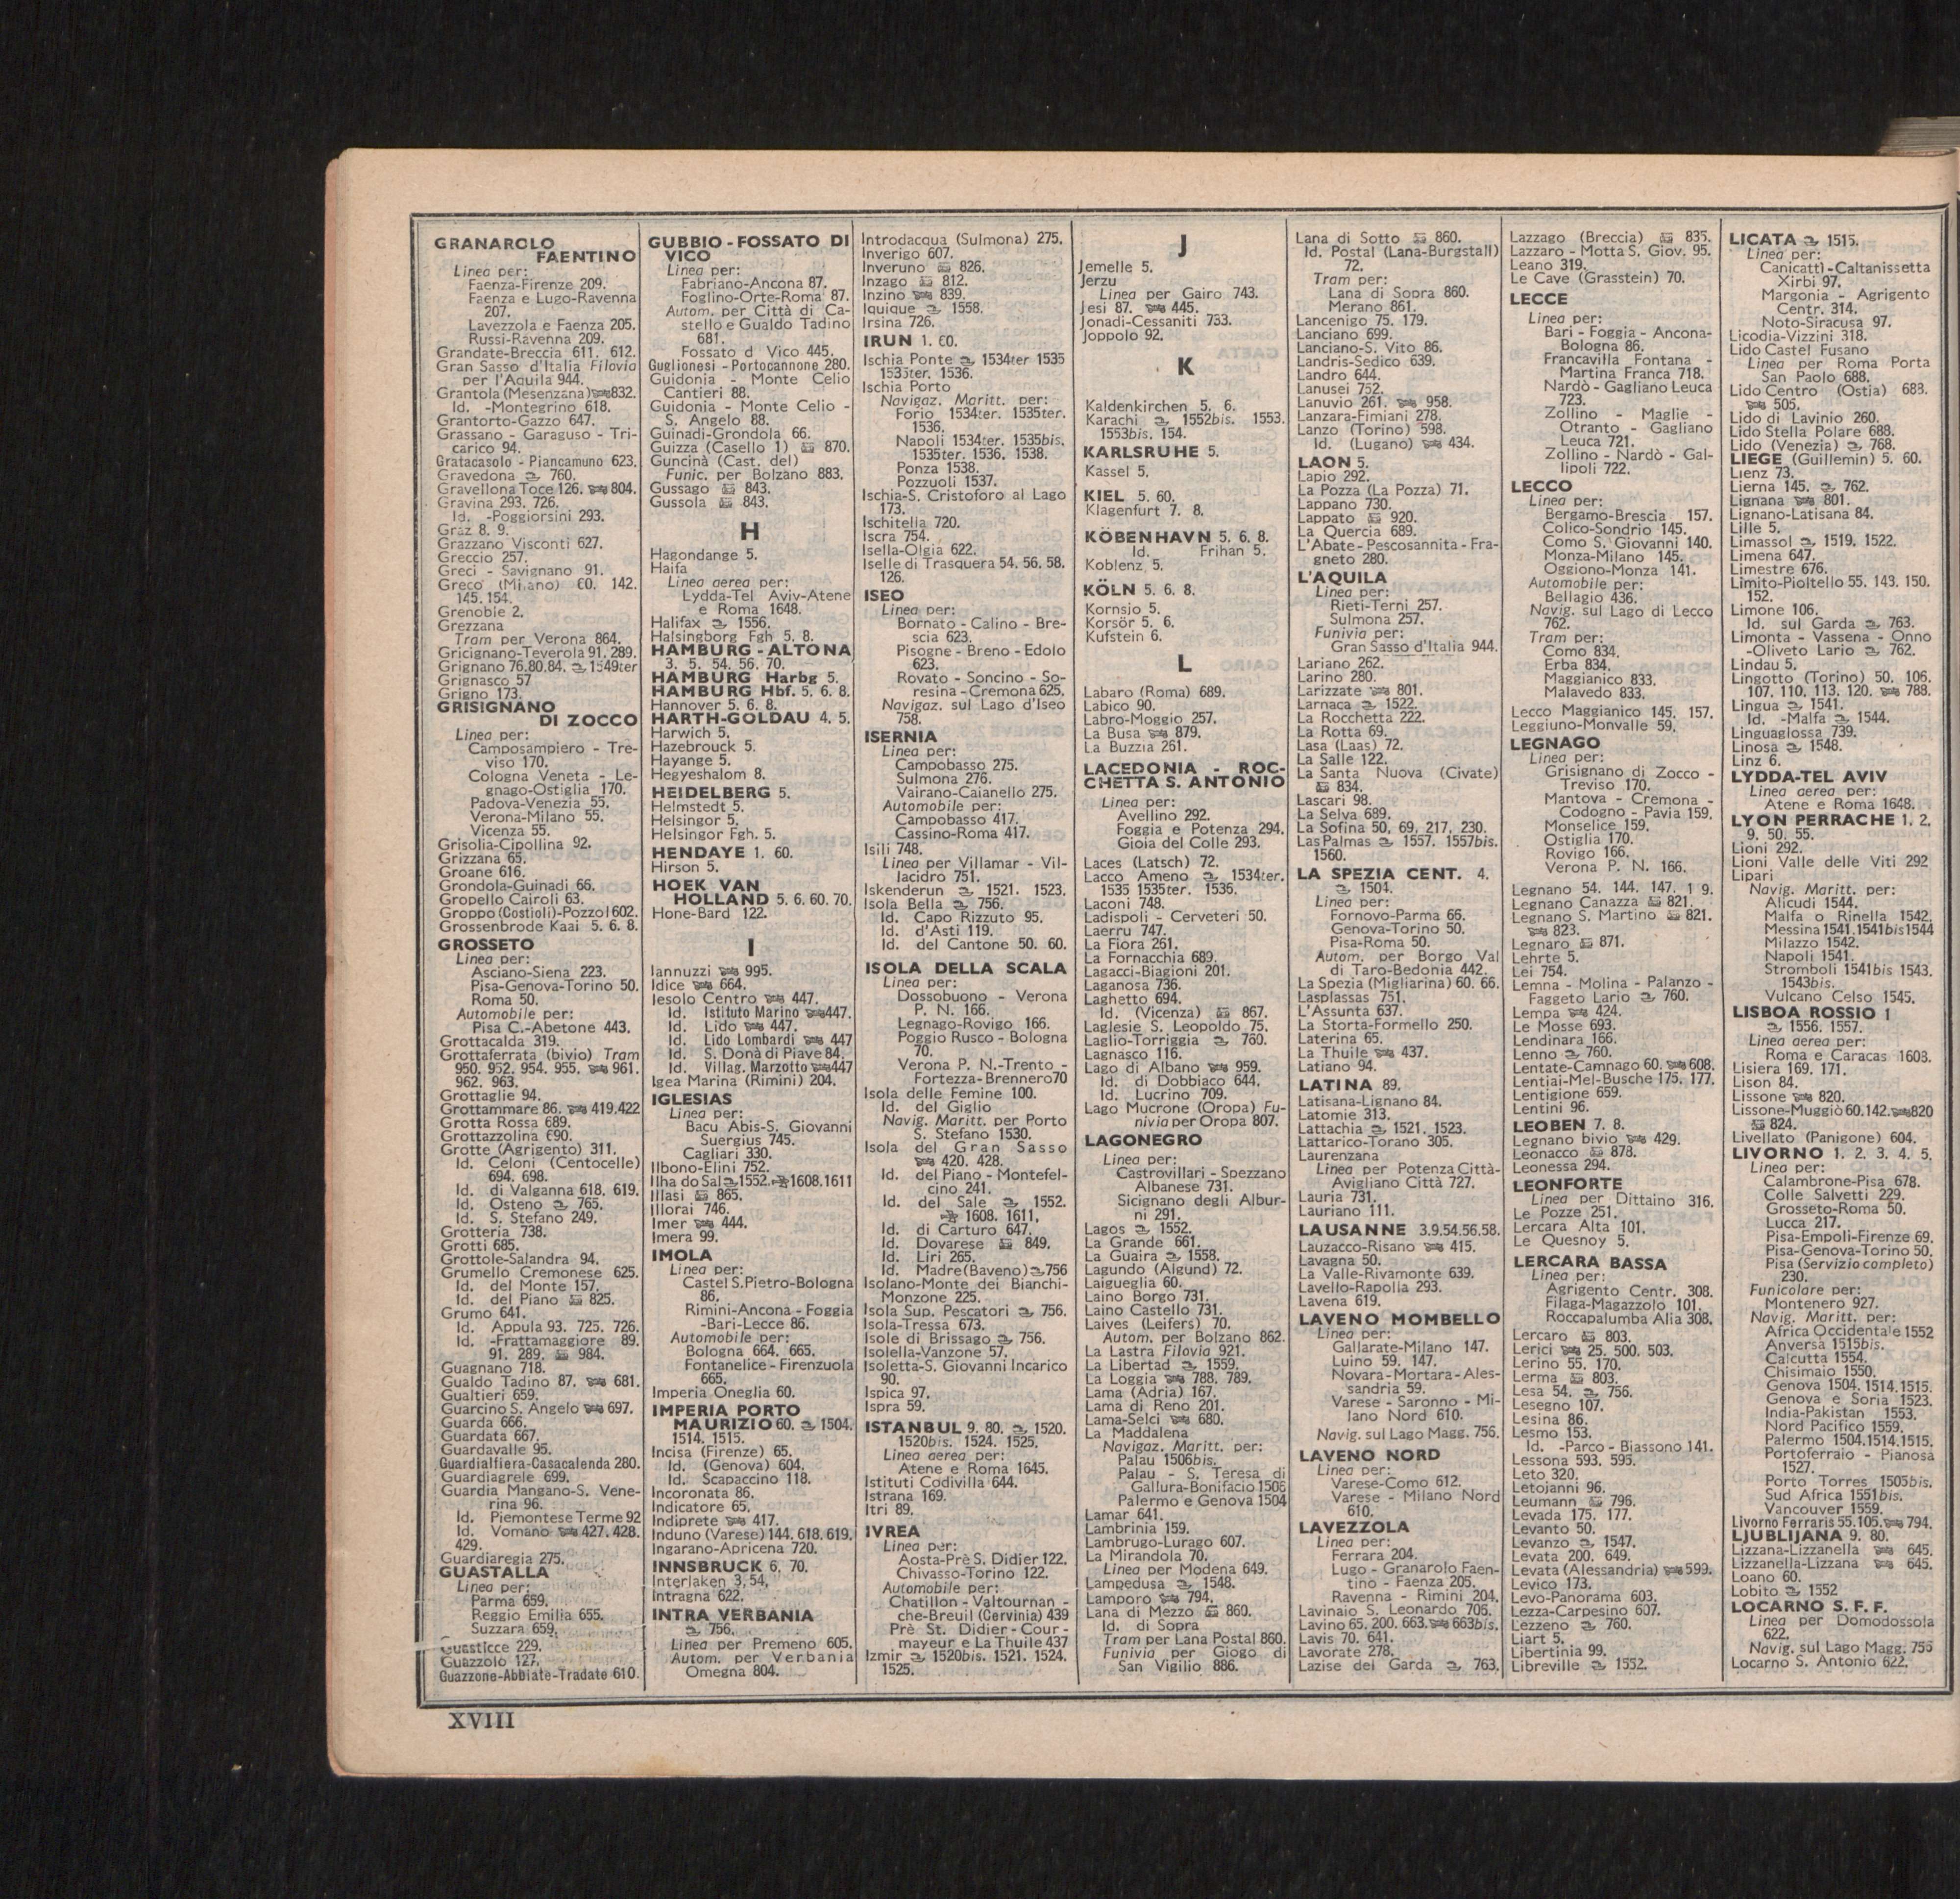 GRANAROLO
FAENTINO
Linea per:
Faenza-Firenze 209.
Faenza e Lugo-Ravenna
207.
Lavezzola e Faenza 205.
Russi-Ravenna 209.
Grandate-Breccia 611. 612.
Gran Sasso d'Italia Filovia
per l'Aquila 944.
Grantola (Mesenzana) 832.
Id. -Montegrino 618.
Grantorto-Gazzo 647.
Grassano - Garaguso - Tri-
carico 94.
Gratacasolo - Piancamuno 623.
Gravedona 760.
Gravellona Toce 126. 804.
Gravina 293. 726.
Id. -Poggiorsini 293.
Graz 8. 9.
Grazzano Visconti 627.
Greccio 257.
Greci - Savignano 91.
Greco (Milano) 60. 142.
145. 154.
Grenoble 2.
Grezzana
Tram per Verona 864.
Gricignano-Teverola 91. 289.
Grignano 76.80.84. 1549ter
Grignasco 57
Grigno 173.
GRISIGNANO
DI ZOCCO
Linea per:
Camposampiero - Tre-
viso 170.
Cologna Veneta - Le-
gnago-Ostiglia 170.
Padova-Venezia 55.
Verona-Milano 55.
Vicenza 55.
Grisolia-Cipollina 92.
Grizzana 65.
Groane 616.
Grondola-Guinadi 66.
Gropello Cairoli 63.
Groppo (Costioli)-Pozzol 602.
Grossenbrode Kaai 5. 6. 8.
GROSSETO
Linea per:
Asciano-Siena 223.
Pisa-Genova-Torino 50.
Roma 50.
Automobile per:
Pisa C.-Abetone 443.
Grottacalda 319.
Grottaferrata (bivio) Tram
950. 952. 954. 955. 961.
962. 963.
Grottaglie 94.
Grottammare 86. 419.422
Grotta Rossa 689.
Grottazzolina 690.
Grotte (Agrigento) 311.
Id. Celoni (Centocelle)
694. 698.
Id. di Valganna 618. 619.
Id. Osteno 765.
Id. S. Stefano 249.
Grotteria 738.
Grotti 685.
Grottole-Salandra 94.
Grumello Cremonese 625.
Id. del Monte 157.
Id. del Piano 825.
Grumo 641.
Id. Appula 93. 725. 726.
Id. -Frattamaggiore 89.
91. 289. 984.
Guagnano 718.
Gualdo Tadino 87. 681.
Gualtieri 659.
Guarcino S. Angelo 697.
Guarda 666.
Guardata 667.
Guardavalle 95.
Guardialfiera-Casacalenda 280.
Guardiagrele 699.
Guardia Mangano-S. Vene-
rina 96.
Id. Piemontese Terme 92
Id. Vomano 427. 428.
429.
Guardiaregia 275.
GUASTALLA
Linea per:
Parma 659.
Reggio Emilia 655.
Suzzara 659.
Guasticce 229.
Guazzolo 127.
Guazzone-Abbiate-Tradate 610.
GUBBIO - FOSSATO DI
VICO
Linea per:
Fabriano-Ancona 87.
Foglino-Orte-Roma 87.
Autom. per Città di Ca-
stello e Gualdo Tadino
681.
Fossato d Vico 445.
Guglionesi - Portocannone 280.
Guidonia - Monte Celio
Cantieri 88.
Guidonia - Monte Celio -
S. Angelo 88.
Guinadi-Grondola 66.
Guizza (Casello 1) 870.
Guncinà (Cast. del)
Funic. per Bolzano 883.
Gussago 843.
Gussola 843.
H
Hagondange 5.
Haifa
Linea aerea per:
Lydda-Tel Aviv-Atene
e Roma 1648.
Halifax 1556.
Halsingborg Fgh 5. 8.
HAMBURG - ALTONA
3. 5. 54. 56. 70.
HAMBURG Harbg 5.
HAMBURG Hbf. 5. 6. 8.
Hannover 5. 6. 8.
HARTH-GOLDAU 4. 5.
Harwich 5.
Hazebrouck 5.
Hayange 5.
Hegyeshalom 8.
HEIDELBERG 5.
Helmstedt 5.
Helsingor 5.
Helsingor Fgh. 5.
HENDAYE 1. 60.
Hirson 5.
HOEK VAN
HOLLAND 5. 6. 60. 70.
Hone-Bard 122.
I
Iannuzzi 995.
Idice 664.
Iesolo Centro 447.
Id. Istituto Marino 447.
Id. Lido 447.
Id. Lido Lombardi 447
Id. S. Donà di Piave 84.
Id. Villag. Marzotto 447
Igea Marina (Rimini) 204.
IGLESIAS
Linea per:
Bacu Abis-S. Giovanni
Suergius 745.
Cagliari 330.
Ilbono-Elini 752.
Ilha do Sal 1552. 1608.1611
Illasi 865.
Illorai 746.
Imer 444.
Imera 99.
IMOLA
Linea per:
Castel S.Pietro-Bologna
86.
Rimini-Ancona - Foggia
-Bari-Lecce 86.
Automobile per:
Bologna 664. 665.
Fontanelice - Firenzuola
665.
Imperia Oneglia 60.
IMPERIA PORTO
MAURIZIO 60. 1504.
1514. 1515.
Incisa (Firenze) 65.
Id. (Genova) 604.
Id. Scapaccino 118.
Incoronata 86.
Indicatore 65.
Indiprete 417.
Induno (Varese) 144. 618. 619.
Ingarano-Apricena 720.
INNSBRUCK 6, 70.
Interlaken 3, 54,
Intragna 622.
INTRA VERBANIA
756.
Linea per Premeno 605.
Autom. per Verbania
Omegna 804.
Introdacqua (Sulmona) 275.
Inverigo 607.
Inveruno 826.
Inzago 812.
Inzino 839.
Iquique 1558.
Irsina 726.
IRUN 1. 60.
Ischia Ponte 1534ter 1535
1535ter. 1536.
Ischia Porto
Navigaz. Maritt. per:
Forio 1534ter. 1535ter.
1536.
Napoli 1534ter. 1535bis.
1535ter. 1536. 1538.
Ponza 1538.
Pozzuoli 1537.
Ischia-S. Cristoforo al Lago
173.
Ischitella 720.
Iscra 754.
Isella-Olgia 622.
Iselle di Trasquera 54. 56. 58.
126.
ISEO
Linea per:
Bornato - Calino - Bre-
scia 623.
Pisogne - Breno - Edolo
623.
Rovato - Soncino - So-
resina - Cremona 625.
Navigaz. sul Lago d'Iseo
758.
ISERNIA
Linea per:
Campobasso 275.
Sulmona 276.
Vairano-Caianello 275.
Automobile per:
Campobasso 417.
Cassino-Roma 417.
Isili 748.
Linea per Villamar - Vil-
lacidro 751.
Iskenderun 1521. 1523.
Isola Bella 756.
Id. Capo Rizzuto 95.
Id. d'Asti 119.
Id. del Cantone 50. 60.
ISOLA DELLA SCALA
Linea per:
Dossobuono - Verona
P. N. 166.
Legnago-Rovigo 166.
Poggio Rusco - Bologna
70.
Verona P. N.-Trento -
Fortezza-Brennero 70
Isola delle Femine 100.
Id. del Giglio
Navig. Maritt. per Porto
S. Stefano 1530.
Isola del Gran Sasso
420. 428.
Id. del Piano - Montefel-
cino 241.
Id. del Sale 1552.
1608. 1611.
Id. di Carturo 647.
Id. Dovarese 849.
Id. Liri 265.
Id. Madre(Baveno) 756
Isolano-Monte dei Bianchi-
Monzone 225.
Isola Sup. Pescatori 756.
Isola-Tressa 673.
Isole di Brissago 756.
Isolella-Vanzone 57.
Isoletta-S. Giovanni Incarico
90.
Ispica 97.
Ispra 59.
ISTANBUL 9. 80. 1520.
1520bis. 1524. 1525.
Linea aerea per:
Atene e Roma 1645.
Istituti Codivilla 644.
Istrana 169.
Itri 89.
IVREA
Linea per:
Aosta-Prè S. Didier 122.
Chivasso-Torino 122.
Automobile per:
Chatillon - Valtournan -
che-Breuil (Cervinia) 439
Prè St. Didier - Cour -
mayeur e La Thuile 437
Izmir 1520bis. 1521. 1524.
1525.
J
Jemelle 5.
Jerzu
Linea per Gairo 743.
Jesi 87. 445.
Jonadi-Cessaniti 733.
Joppolo 92.
K
Kaldenkirchen 5. 6.
Karachi 1552bis. 1553.
1553bis. 154.
KARLSRUHE 5.
Kassel 5.
KIEL 5. 60.
Klagenfurt 7. 8.
KÖBENHAVN 5. 6. 8.
Id. Frihan 5.
Koblenz 5.
KÖLN 5. 6. 8.
Kornsjo 5.
Korsör 5. 6.
Kufstein 6.
L
Labaro (Roma) 689.
Labico 90.
Labro-Moggio 257.
La Busa 879.
La Buzzia 261.
LACEDONIA - ROC-
CHETTA S. ANTONIO
Linea per:
Avellino 292.
Foggia e Potenza 294.
Gioia del Colle 293.
Laces (Latsch) 72.
Lacco Ameno 1534ter.
1535 1535ter. 1536.
Laconi 748.
Ladispoli - Cerveteri 50.
Laerru 747.
La Fiora 261.
La Fornacchia 689.
Lagacci-Biagioni 201.
Laganosa 736.
Laghetto 694.
Id. (Vicenza) 867.
Laglesie S. Leopoldo 75.
Laglio-Torriggia 760.
Lagnasco 116.
Lago di Albano 959.
Id. di Dobbiaco 644.
Id. Lucrino 709.
Lago Mucrone (Oropa) Fu-
nivia per Oropa 807.
LAGONEGRO
Linea per:
Castrovillari - Spezzano
Albanese 731.
Sicignano degli Albur-
ni 291.
Lagos 1552.
La Grande 661.
La Guaira 1558.
Lagundo (Algund) 72.
Laigueglia 60.
Laino Borgo 731.
Laino Castello 731.
Laives (Leifers) 70.
Autom. per Bolzano 862.
La Lastra Filovia 921.
La Libertad 1559.
La Loggia 788. 789.
Lama (Adria) 167.
Lama di Reno 201.
Lama-Selci 680.
La Maddalena
Navigaz. Maritt. per:
Palau 1506bis.
Palau - S. Teresa di
Gallura-Bonifacio 1506
Palermo e Genova 1504
Lamar 641.
Lambrinia 159.
Lambrugo-Lurago 607.
La Mirandola 70.
Linea per Modena 649.
Lampedusa 1548.
Lamporo 794.
Lana di Mezzo 860.
Id. di Sopra
Tram per Lana Postal 860.
Funivia per Giogo di
San Vigilio 886.
Lana di Sotto 860.
Id. Postal (Lana-Burgstall)
72.
Tram per:
Lana di Sopra 860.
Merano 861.
Lancenigo 75. 179.
Lanciano 699.
Lanciano-S. Vito 86.
Landris-Sedico 639.
Landro 644.
Lanusei 752.
Lanuvio 261. 958.
Lanzara-Fimiani 278.
Lanzo (Torino) 598.
Id. (Lugano) 434.
LAON 5.
Lapio 292.
La Pozza (La Pozza) 71.
Lappano 730.
Lappato 920.
La Quercia 689.
L'Abate - Pescosannita - Fra-
gneto 280.
L'AQUILA
Linea per:
Rieti-Terni 257.
Sulmona 257.
Funivia per:
Gran Sasso d'Italia 944.
Lariano 262.
Larino 280.
Larizzate 801.
Larnaca 1522.
La Rocchetta 222.
La Rotta 69.
Lasa (Laas) 72.
La Salle 122.
La Santa Nuova (Civate)
834.
Lascari 98.
La Selva 689.
La Sofina 50. 69. 217. 230.
Las Palmas 1557. 1557bis.
1560.
LA SPEZIA CENT. 4.
1504.
Linea per:
Fornovo-Parma 66.
Genova-Torino 50.
Pisa-Roma 50.
Autom. per Borgo Val
di Taro-Bedonia 442.
La Spezia (Migliarina) 60. 66.
Lasplassas 751.
L'Assunta 637.
La Storta-Formello 250.
Laterina 65.
La Thuile 437.
Latiano 94.
LATINA 89.
Latisana-Lignano 84.
Latomie 313.
Lattachia 1521. 1523.
Lattarico-Torano 305.
Laurenzana
Linea per Potenza Città-
Avigliano Città 727.
Lauria 731.
Lauriano 111.
LAUSANNE 3.9.54.56.58.
Lauzacco-Risano 415.
Lavagna 50.
La Valle-Rivamonte 639.
Lavello-Rapolla 293.
Lavena 619.
LAVENO MOMBELLO
Linea per:
Gallarate-Milano 147.
Luino 59. 147.
Novara-Mortara-Ales-
sandria 59.
Varese - Saronno - Mi-
lano Nord 610.
Navig. sul Lago Magg. 756.
LAVENO NORD
Linea per:
Varese-Como 612.
Varese - Milano Nord
610.
LAVEZZOLA
Linea per:
Ferrara 204.
Lugo - Granarolo Faen-
tino - Faenza 205.
Ravenna - Rimini 204.
Lavinaio S. Leonardo 706.
Lavino 65. 200. 663. 663bis.
Lavis 70. 641.
Lavorate 278.
Lazise del Garda 763.
Lazzago (Breccia) 835.
Lazzaro - Motta S. Giov. 95.
Leano 319.
Le Cave (Grasstein) 70.
LECCE
Linea per:
Bari - Foggia - Ancona-
Bologna 86.
Francavilla Fontana -
Martina Franca 718.
Nardò - Gagliano Leuca
723.
Zollino - Maglie -
Otranto - Gagliano
Leuca 721.
Zollino - Nardò - Gal-
lipoli 722.
LECCO
Linea per:
Bergamo-Brescia 157.
Colico-Sondrio 145.
Como S. Giovanni 140.
Monza-Milano 145.
Oggiono-Monza 141.
Automobile per:
Bellagio 436.
Navig. sul Lago di Lecco
762.
Tram per:
Como 834.
Erba 834.
Maggianico 833.
Malavedo 833.
Lecco Maggianico 145. 157.
Leggiuno-Monvalle 59.
LEGNAGO
Linea per:
Grisignano di Zocco -
Treviso 170.
Mantova - Cremona -
Codogno - Pavia 159.
Monselice 159.
Ostiglia 170.
Rovigo 166.
Verona P. N. 166.
Legnano 54. 144. 147. 1 9.
Legnano Canazza 821.
Legnano S. Martino 821.
823.
Legnaro 871.
Lehrte 5.
Lei 754.
Lemna - Molina - Palanzo -
Faggeto Lario 760.
Lempa 424.
Le Mosse 693.
Lendinara 166.
Lenno 760.
Lentate-Camnago 60. 608.
Lentiai-Mel-Busche 175. 177.
Lentigione 659.
Lentini 96.
LEOBEN 7. 8.
Legnano bivio 429.
Leonacco 878.
Leonessa 294.
LEONFORTE
Linea per Dittaino 316.
Le Pozze 251.
Lercara Alta 101.
Le Quesnoy 5.
LERCARA BASSA
Linea per:
Agrigento Centr. 308.
Filaga-Magazzolo 101.
Roccapalumba Alia 308.
Lercaro 803.
Lerici 25. 500. 503.
Lerino 55. 170.
Lerma 803.
Lesa 54. 756.
Lesegno 107.
Lesina 86.
Lesmo 153.
Id. -Parco - Biassono 141.
Lessona 593. 595.
Leto 320.
Letojanni 96.
Leumann 796.
Levada 175. 177.
Levanto 50.
Levanzo 1547.
Levata 200. 649.
Levata (Alessandria) 599.
Levico 173.
Levo-Panorama 603.
Lezza-Carpesino 607.
Lezzeno 760.
Liart 5.
Libertinia 99.
Libreville 1552.
LICATA 1515.
Linea per:
Canicattì -Caltanissetta
Xirbi 97.
Margonia - Agrigento
Centr. 314.
Noto-Siracusa 97.
Licodia-Vizzini 318.
Lido Castel Fusano
Linea per Roma Porta
San Paolo 688.
Lido Centro (Ostia) 688.
505.
Lido di Lavinio 260.
Lido Stella Polare 688.
Lido (Venezia) 768.
LIEGE (Guillemin) 5. 60.
Lienz 73.
Lierna 145. 762.
Lignana 801.
Lignano-Latisana 84.
Lille 5.
Limassol 1519. 1522.
Limena 647.
Limestre 676.
Limito-Pioltello 55. 143. 150.
152.
Limone 106.
Id. sul Garda 763.
Limonta - Vassena - Onno
-Oliveto Lario 762.
Lindau 5.
Lingotto (Torino) 50. 106.
107. 110. 113. 120. 788.
Lingua 1541.
Id. -Malfa 1544.
Linguaglossa 739.
Linosa 1548.
Linz 6.
LYDDA-TEL AVIV
Linea aerea per:
Atene e Roma 1648.
LYON PERRACHE 1. 2.
9. 50. 55.
Lioni 292.
Lioni Valle delle Viti 292
Lipari
Navig. Maritt. per:
Alicudi 1544.
Malfa o Rinella 1542.
Messina 1541.1541bis1544
Milazzo 1542.
Napoli 1541.
Stromboli 1541bis 1543.
1543bis.
Vulcano Celso 1545.
LISBOA ROSSIO 1
1556. 1557.
Linea aerea per:
Roma e Caracas 1608.
Lisiera 169. 171.
Lison 84.
Lissone 820.
Lissone-Muggiò 60.142. 820
824.
Livellato (Panigone) 604.
LIVORNO 1. 2. 3. 4. 5.
Linea per:
Calambrone-Pisa 678.
Colle Salvetti 229.
Grosseto-Roma 50.
Lucca 217.
Pisa-Empoli-Firenze 69.
Pisa-Genova-Torino 50.
Pisa (Servizio completo)
230.
Funicolare per:
Montenero 927.
Navig. Maritt. per:
Africa Occidentale 1552
Anversa 1515bis.
Calcutta 1554.
Chisimaio 1550.
Genova 1504. 1514.1515.
Genova e Soria 1523.
India-Pakistan 1553.
Nord Pacifico 1559.
Palermo 1504.1514.1515.
Portoferraio - Pianosa
1527.
Porto Torres 1505bis.
Sud Africa 1551bis.
Vancouver 1559.
Livorno Ferraris 55.105. 794.
LJUBLIJANA 9. 80.
Lizzana-Lizzanella 645.
Lizzanella-Lizzana 645.
Loano 60.
Lobito 1552
LOCARNO S. F. F.
Linea per Domodossola
622.
Navig. sul Lago Magg. 756
Locarno S. Antonio 622.
XVIII